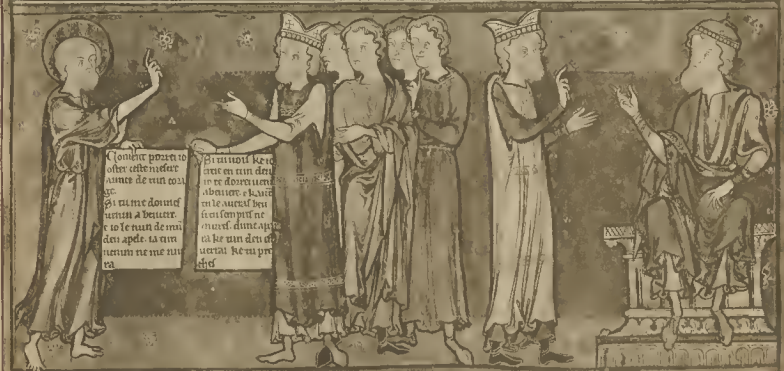 Coment porrei io
oster ceste mescre
aunce de tun cora
ge.
Si tu me donnes
venim a beivere.
e io le num de mun
deu apele. ia tun
venim ne me nui
ra
Si tu vols ke io
creie en tun deu
io te dorrei venim
a beivere. e kaunt
tu le averas beu
si tu sempres ne
murs. dunc apar
ra ke tun deu est
verrai ke tu pre
ches